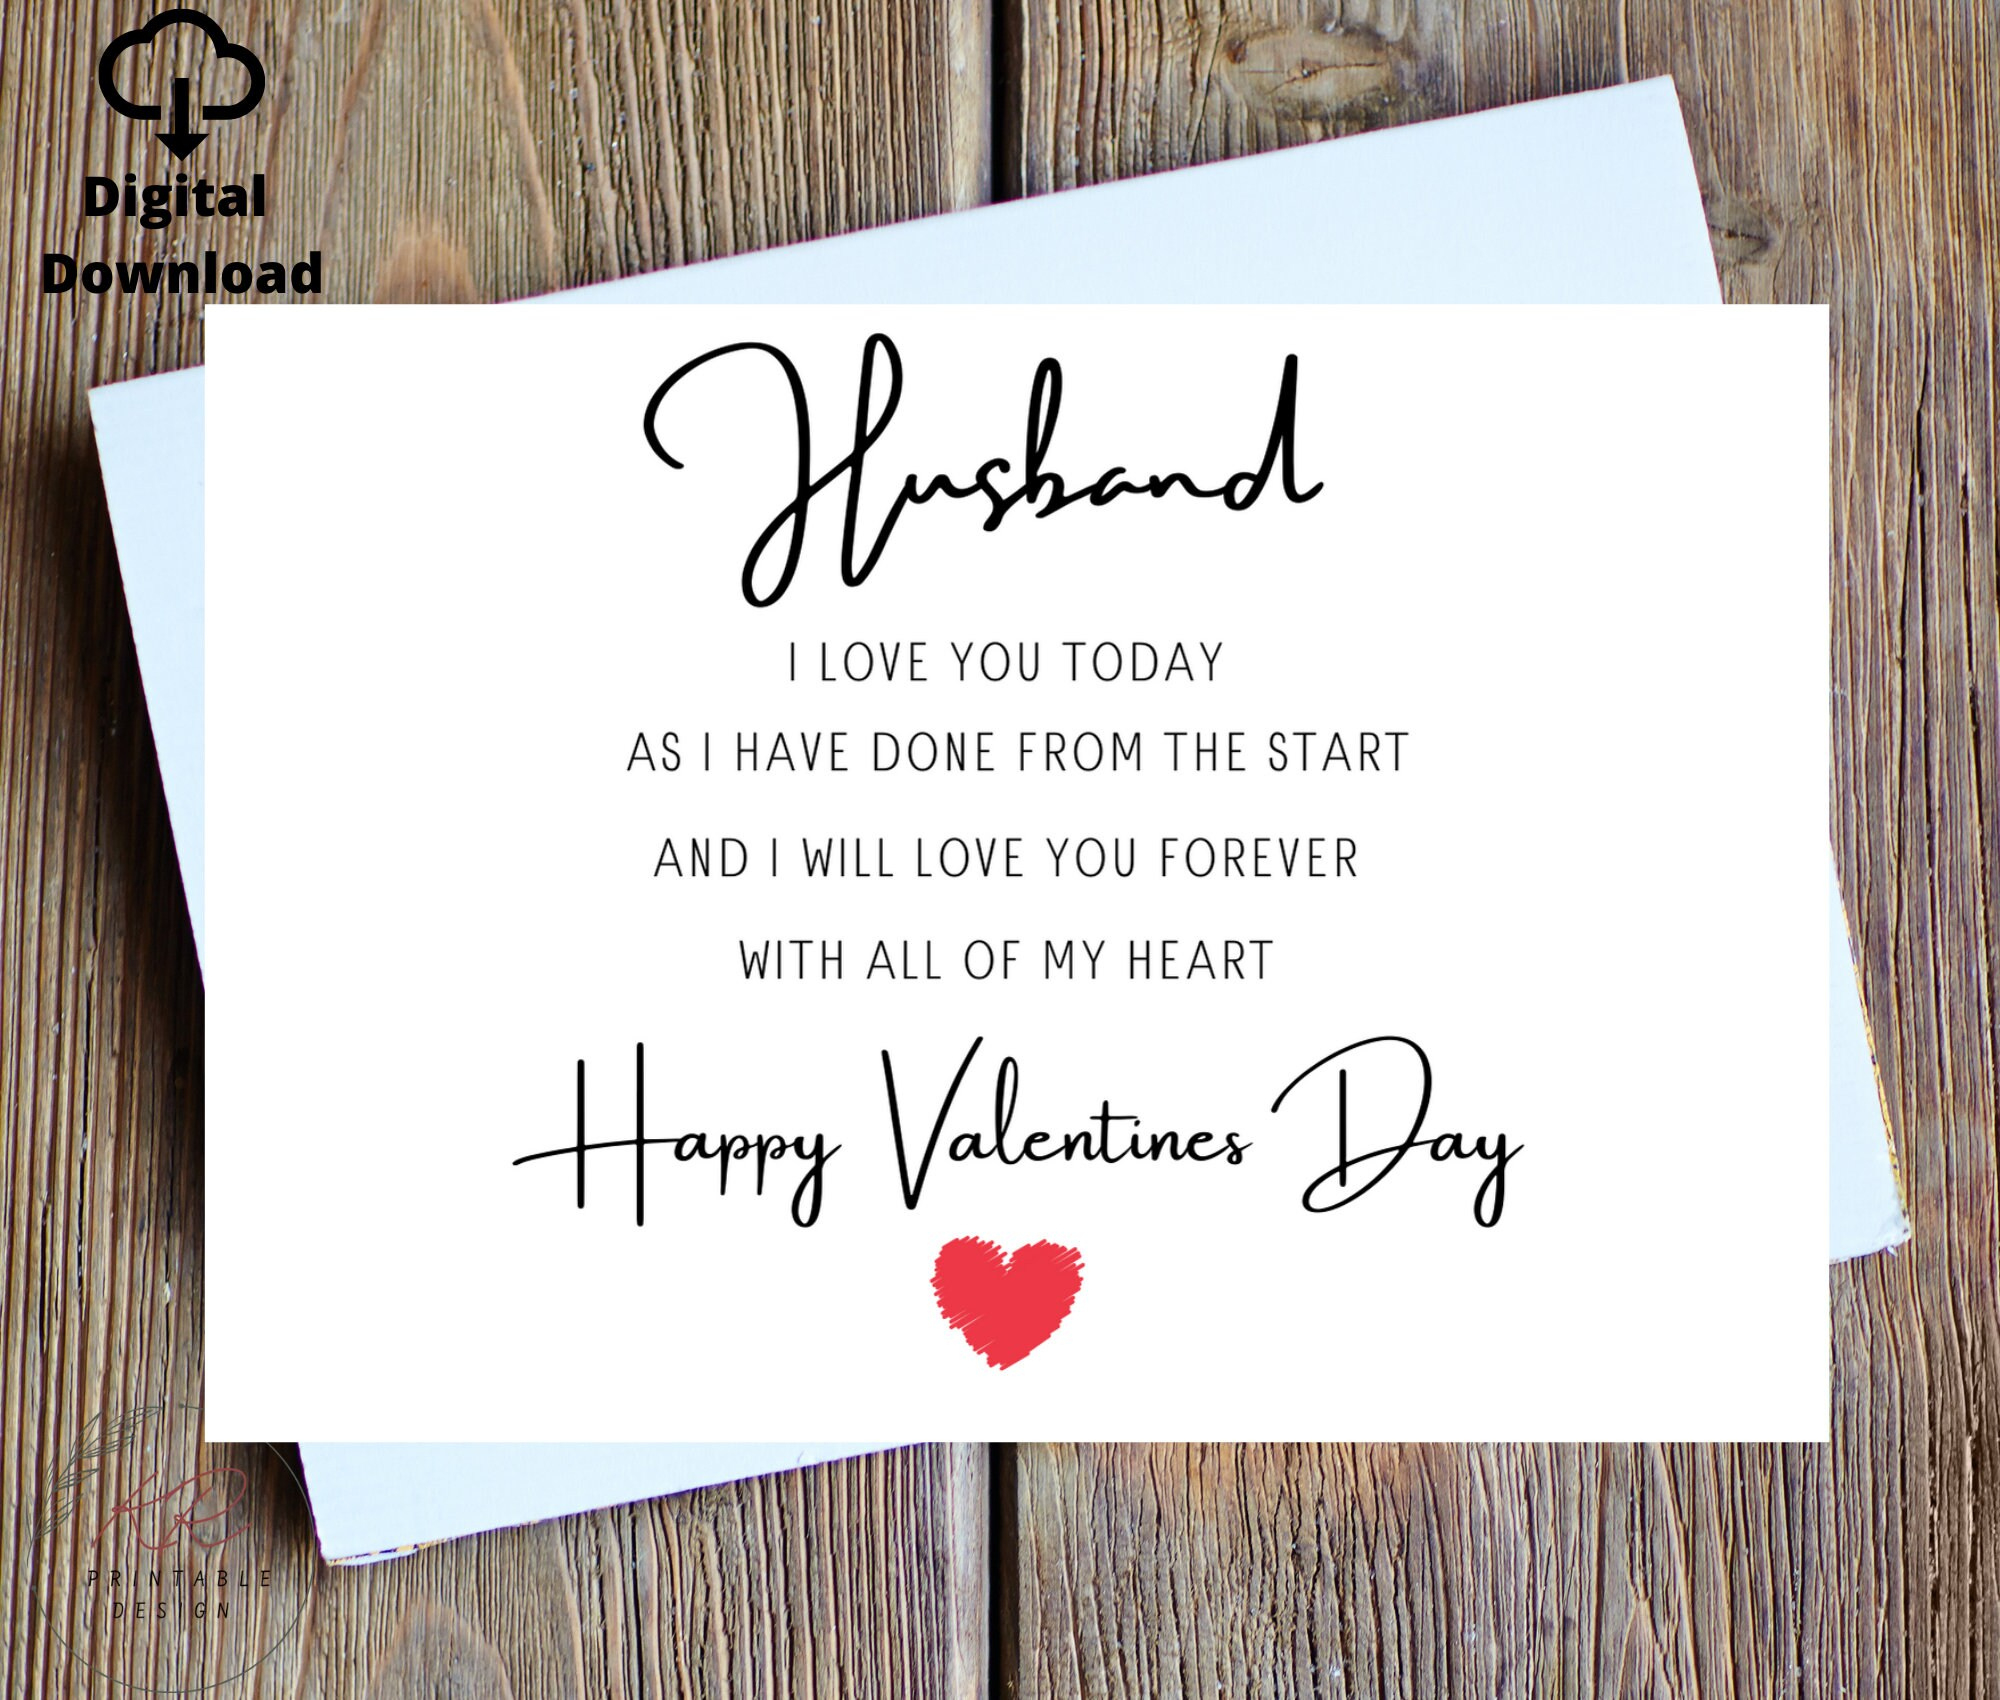 Digital
Download
Husband
I LOVE YOU TODAY
AS I HAVE DONE FROM THE START
AND I WILL LOVE YOU FOREVER
WITH ALL OF MY HEART
Happy Valentines Day
KR
PRINTABLE
DESIGN